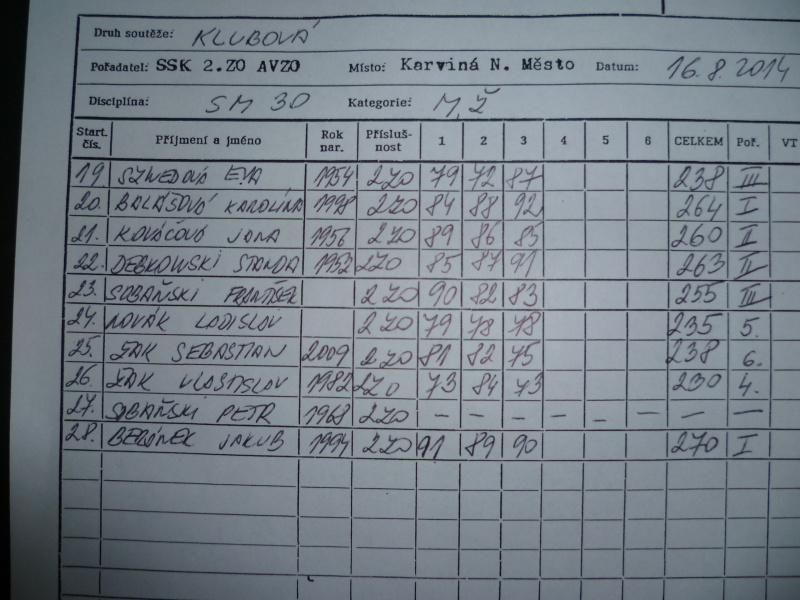 Druh soutěže: KLUBOVÁ
Pořadatel: SSK 2.ZO AVZO Místo: Karviná N. Město Datum: 16.8.2014
Disciplína: SM 30 Kategorie: M,Ž
Start. čís. Příjmení a jméno Rok nar. Přísluš-nost 1 2 3 4 5 6 CELKEM Poř. VT
19. SZWEDOVÁ EVA 1954 2ZO 79 72 87 238 III
20. BALÁŠOVÁ KAROLÍNA 1998 2ZO 84 88 92 264 I
21. KOVÁČOVÁ JANA 1956 2ZO 89 86 85 260 II
22. DEBKOWSKI STANDA 1952 2ZO 85 87 91 263 II
23. SOBAŇSKI FRANTIŠEK 2ZO 90 82 83 255 III
24. NOVÁK LADISLAV 2ZO 79 78 78 235 5.
25. ŽÁK SEBASTIAN 2009 2ZO 81 82 75 238 6.
26. ŽÁK VLASTISLAV 1982 2ZO 73 84 73 230 4.
27. SOBAŇSKI PETR 1968 2ZO – – – – – – – –
28. JAKUB 1994 2ZO 91 89 90 270 I